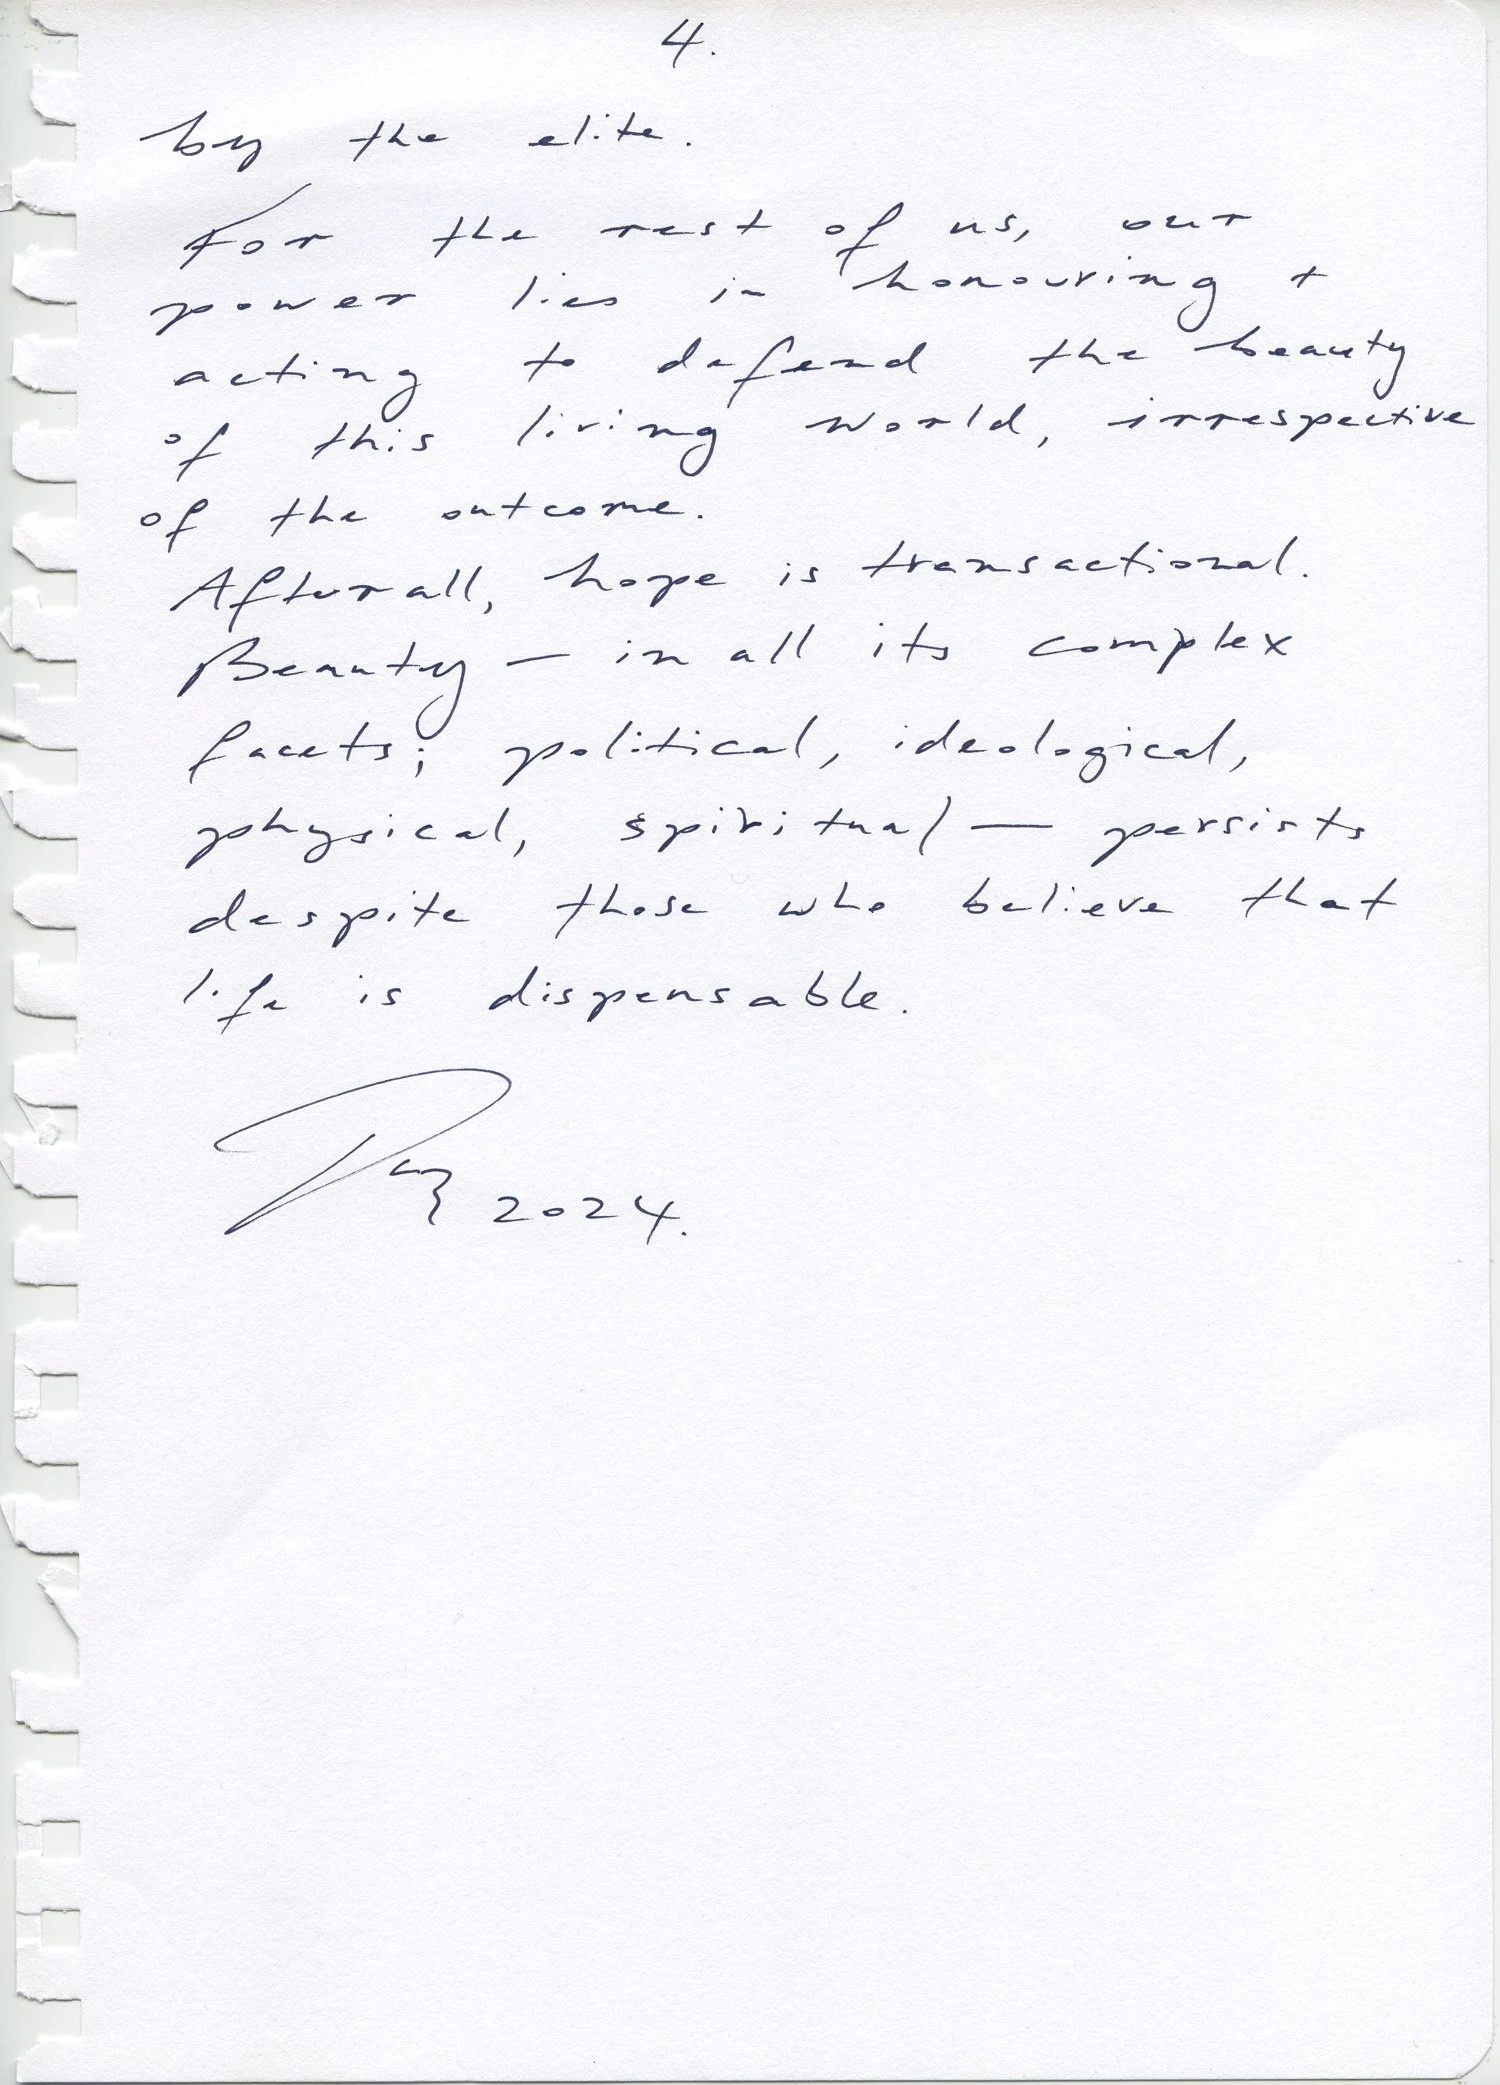 4.
by the elite.
For the rest of us, our
power lies in honouring +
acting to defend the beauty
of this living world, irrespective
of the outcome.
After all, hope is transactional.
Beauty — in all its complex
facets; political, ideological,
physical, spiritual — persists
despite those who believe that
life is dispensable.
2024.